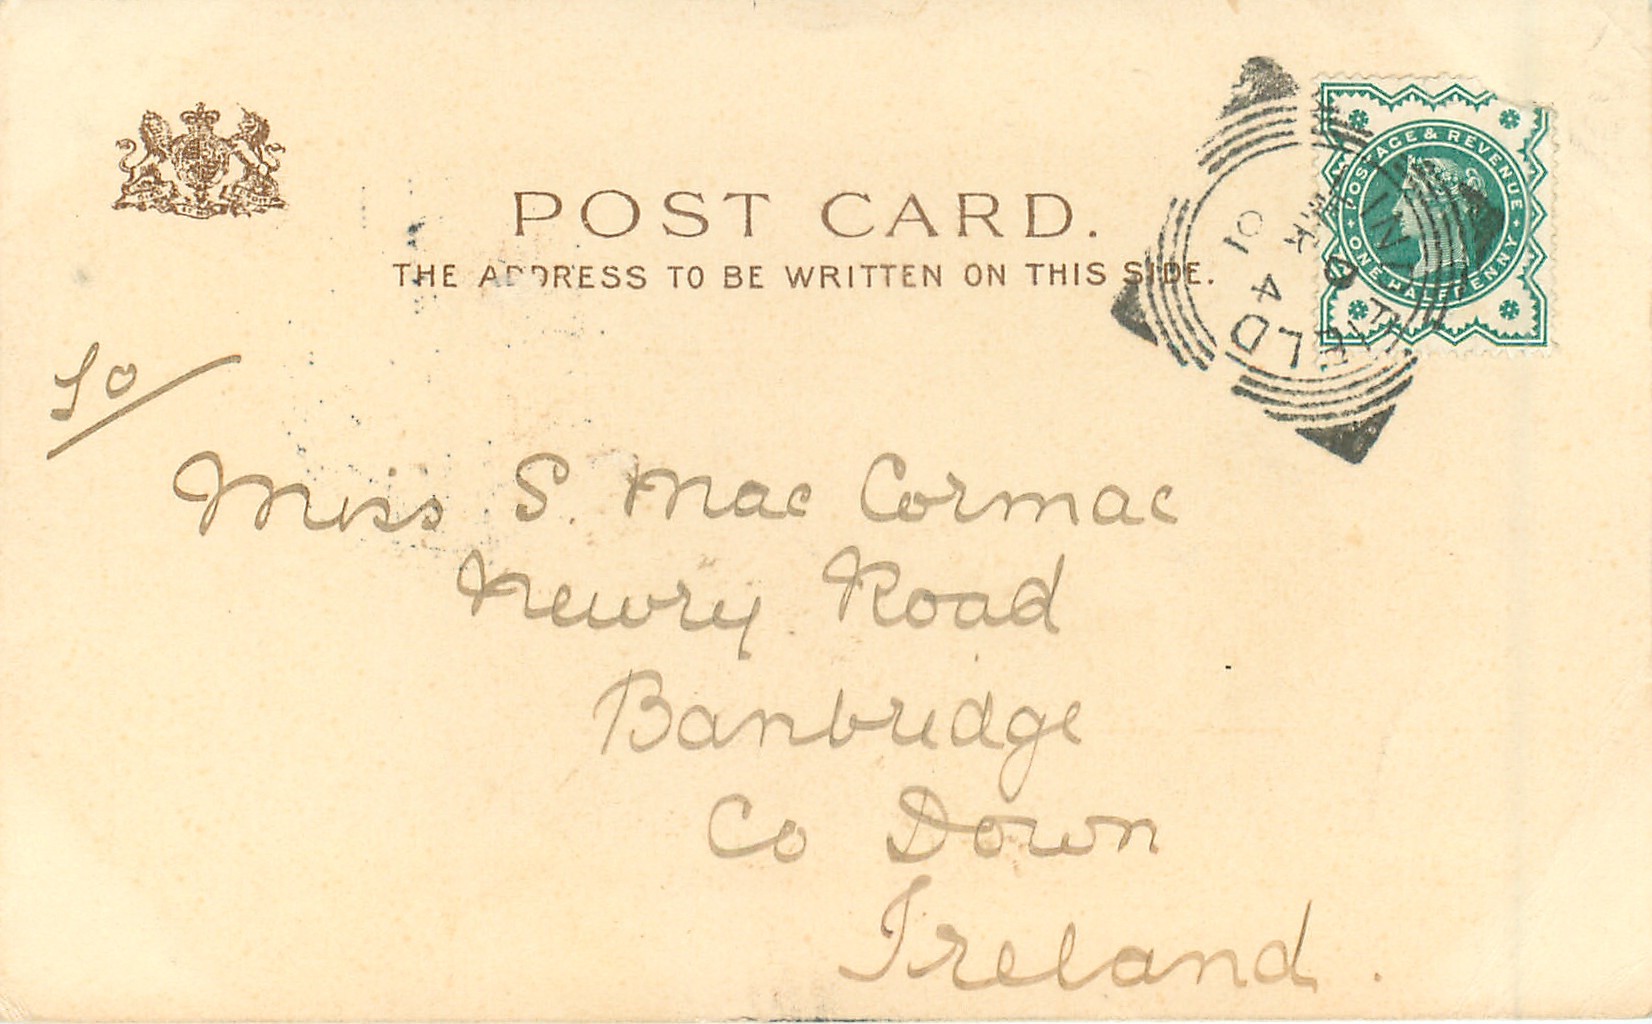 POST CARD.
THE ADDRESS TO BE WRITTEN ON THIS SIDE.
POSTAGE & REVENUE
ONE HALFPENNY
MR 4
01
So/
Miss S. Mac Cormac
Newry Road
Banbridge
Co Down
Ireland.